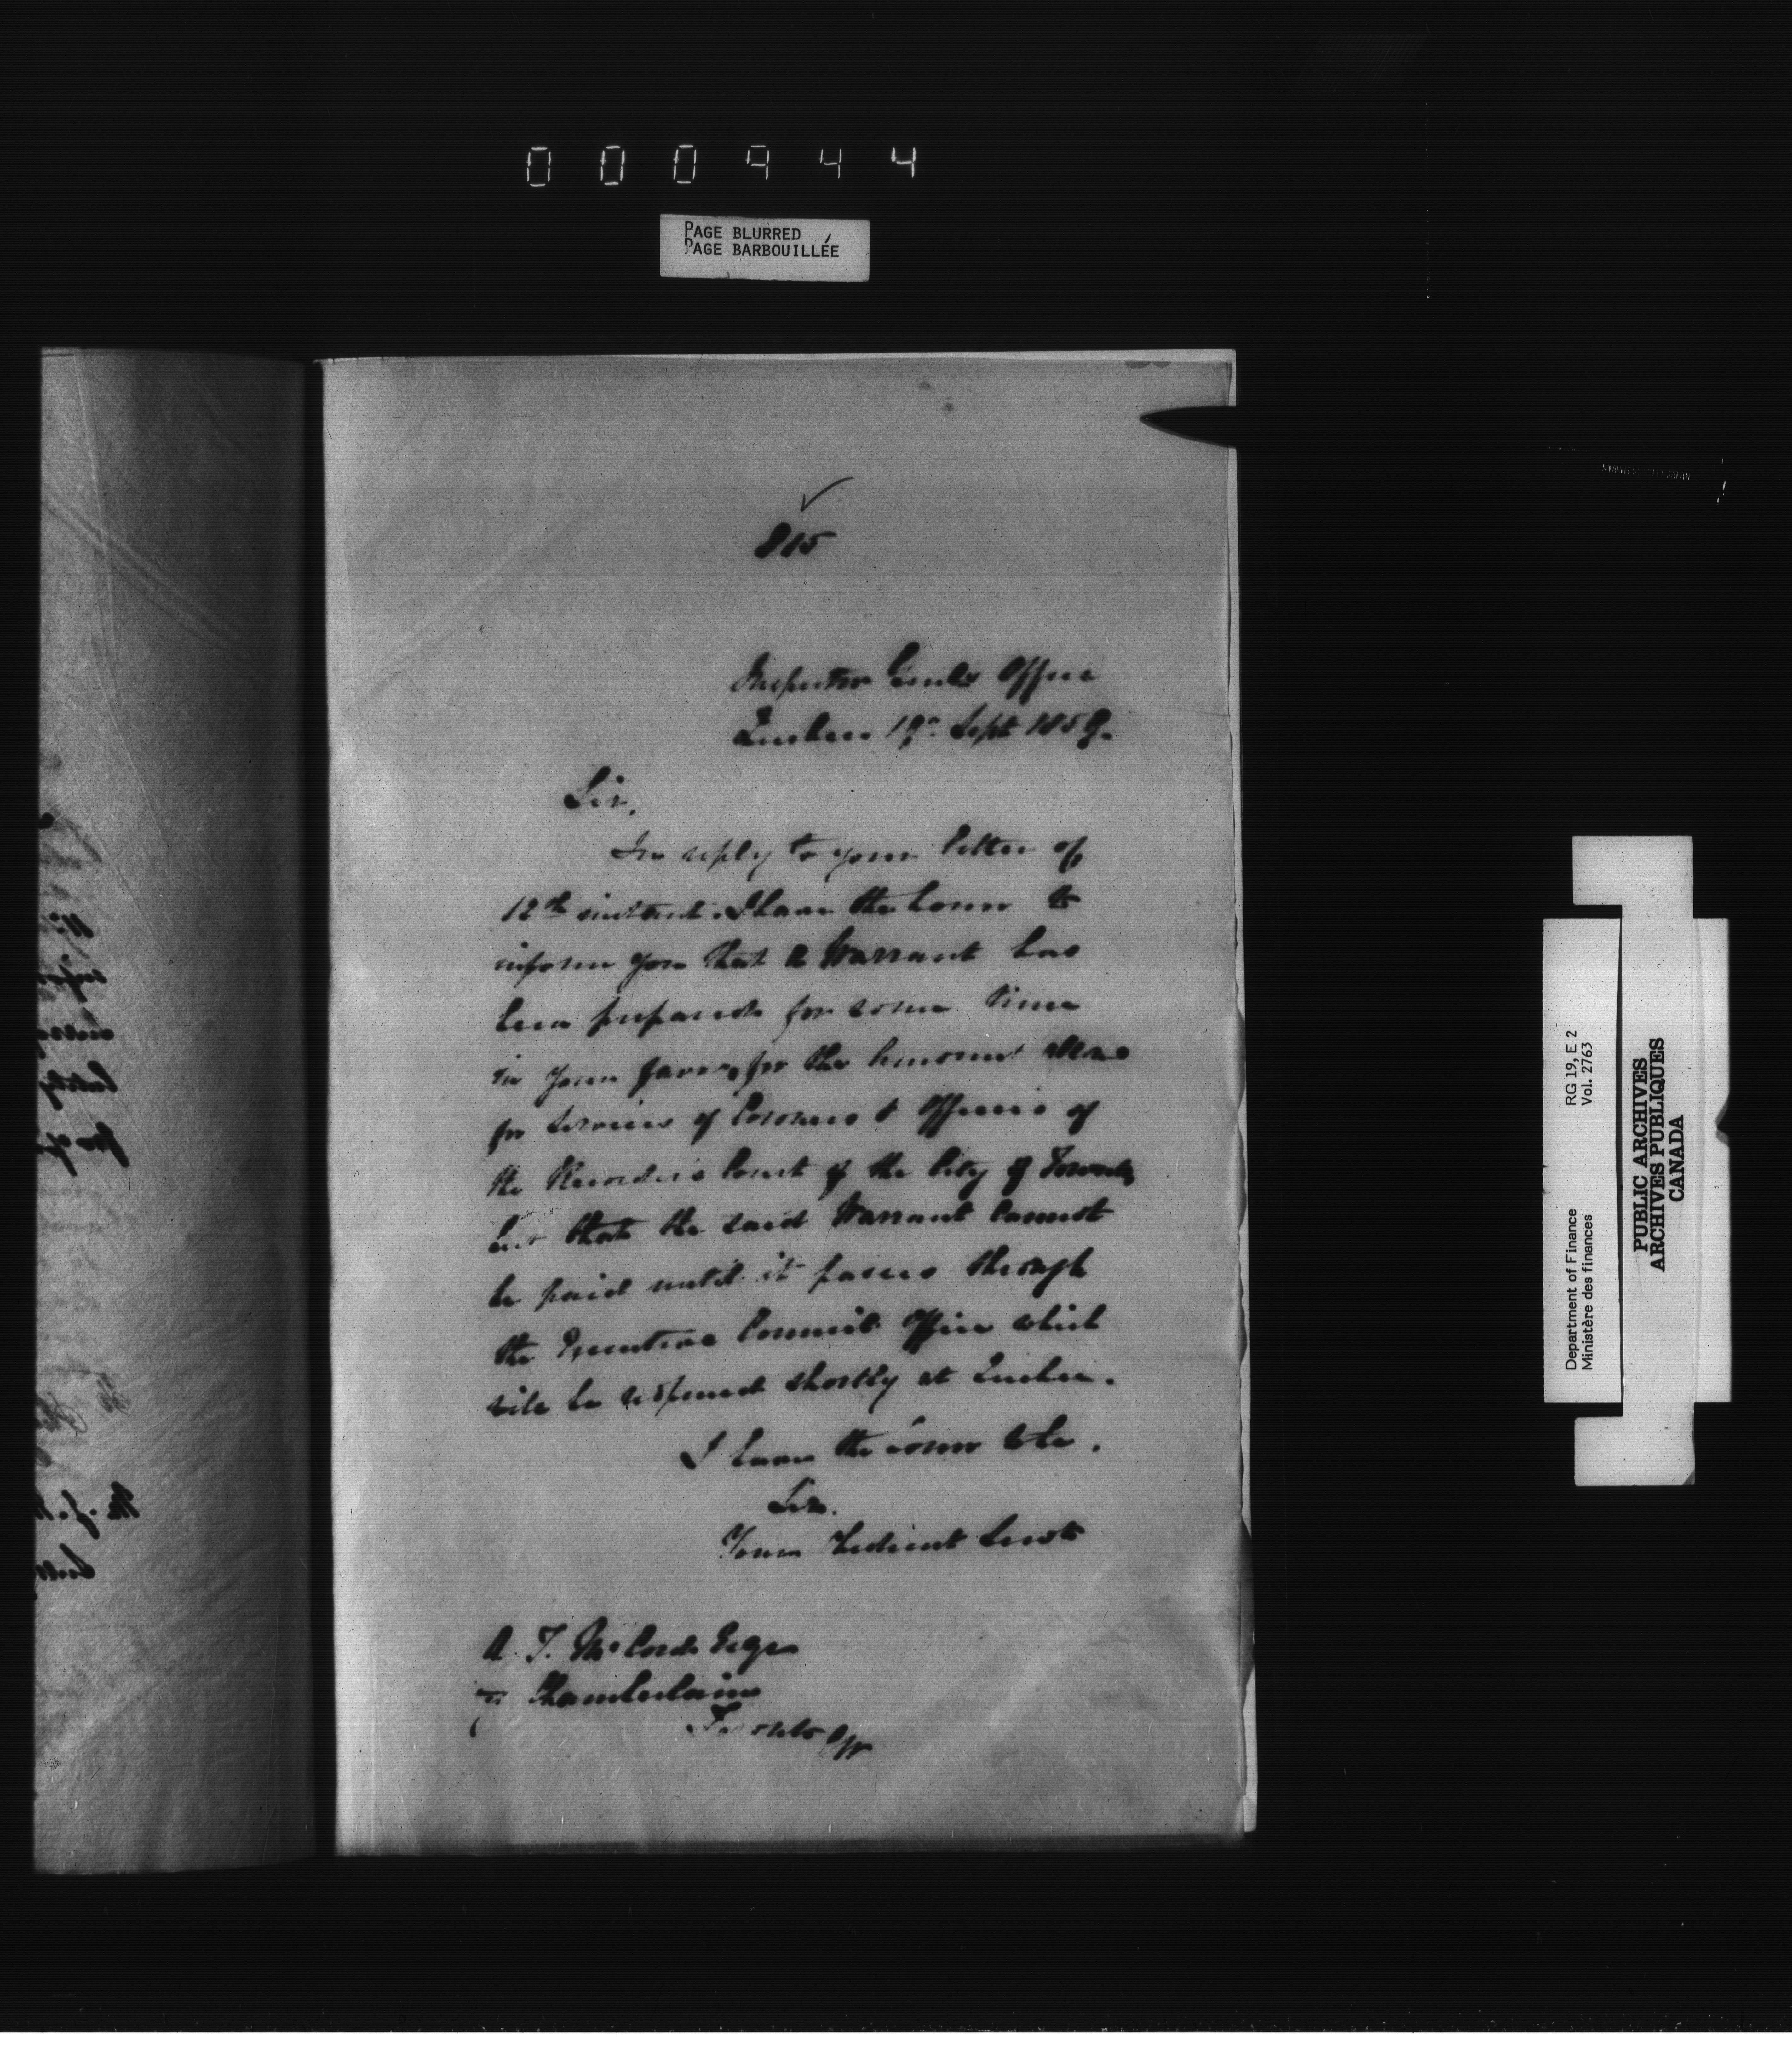 000944
PAGE BLURRED
PAGE BARBOUILLÉE
815
Inspector Genls Office
Quebec 19th Sept 1859.
Sir,
In reply to your letter of
12th instant. I have the honor to
inform you that a Warrant has
been prepared for some time
in your favor, for the amount
for services of Coroners & Officers of
the Recorders Court of the City of Toronto
but that the said Warrant cannot
be paid until it passes through
the Executive Council Office which
will be reopened shortly at Quebec.
I have the honor to be.
Sir.
Your Obedient Servt
A. T. McCord Esqr
Chamberlain
Toronto CW
Department of Finance RG 19, E 2
Ministère des finances Vol. 2763
PUBLIC ARCHIVES
ARCHIVES PUBLIQUES
CANADA